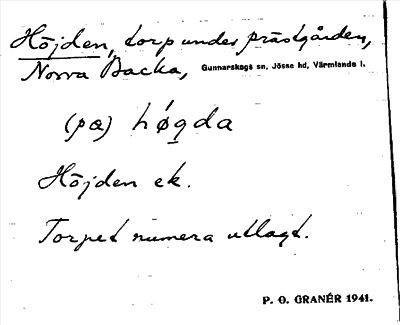 Höjden, torp under prästgården,
Norra Backa, Gunnarskogs sn, Jösse hd, Värmlands l.
(pæ) høgda
Höjden ek.
Torpet numera utlagt.
P. O. GRANÉR 1941.